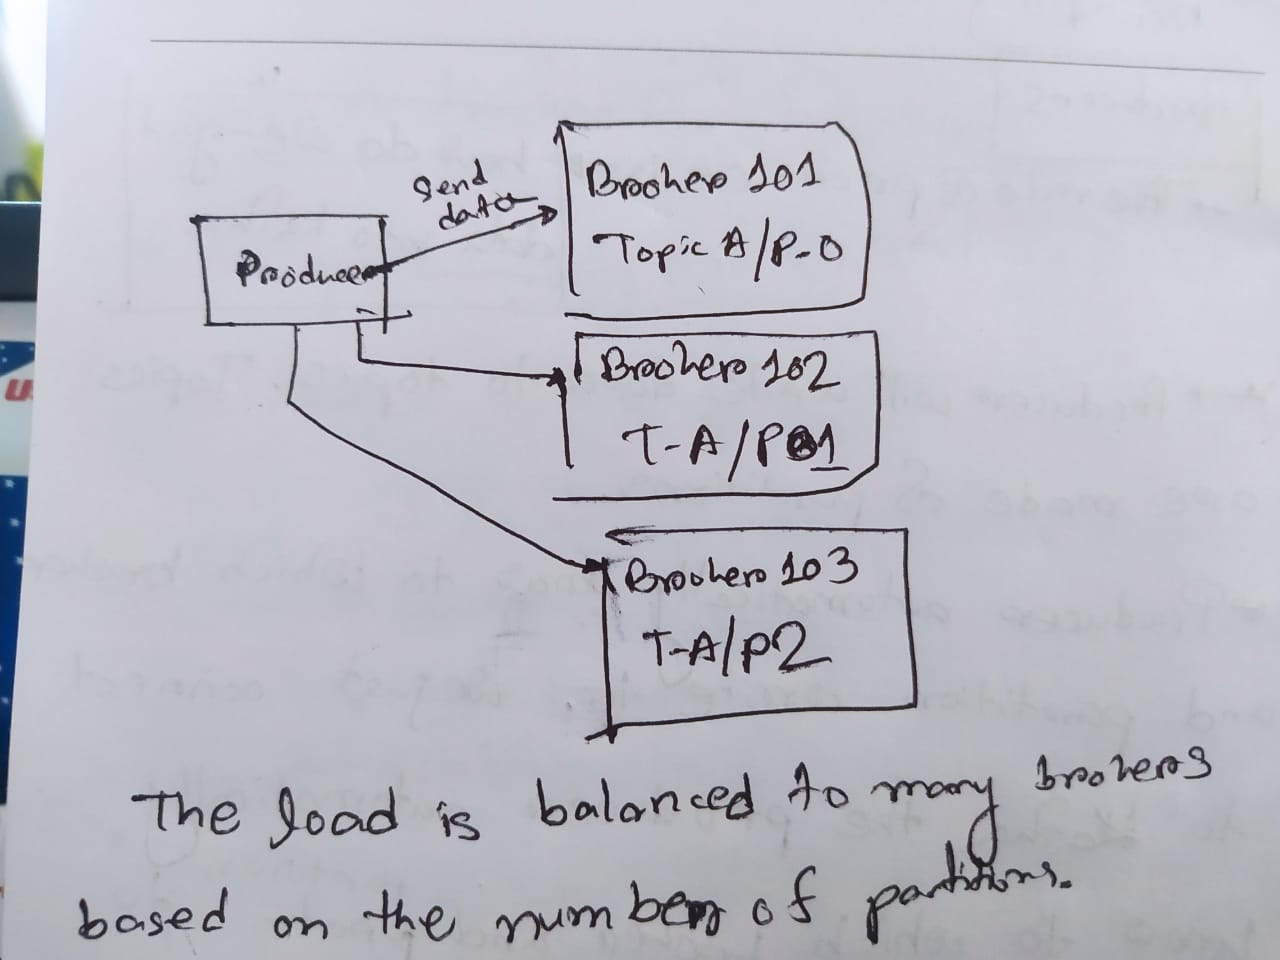 Send
data
Producer
Broker 101
Topic A/P-0
Broker 102
T-A/P01
Broker 103
T-A/P2
The load is balanced to many brokers
based on the number of partitions.